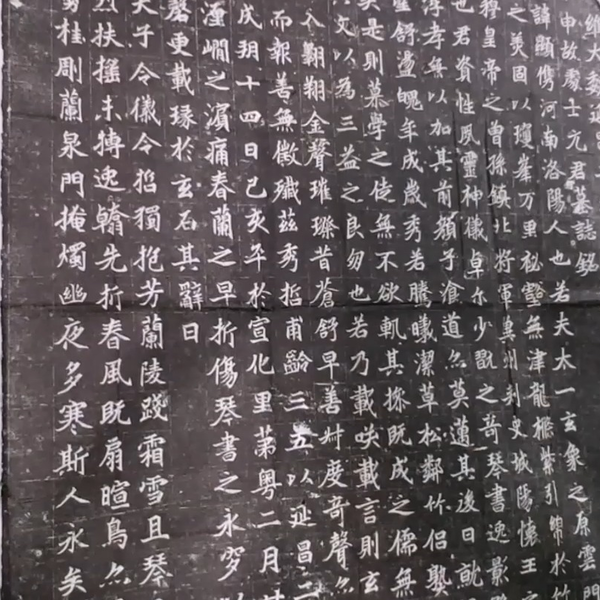 維大魏延昌二
故處士元君墓誌銘
諱顯儁河南洛陽人也若夫太一玄象之原雲門
之美固以瓊峯万里秘壑無津龍樹紫引於竹
穆皇帝之曾孫鎮北將軍冀州刺史城陽懷王
也君資性夙靈神儀卓尒少翫之奇琴書逸影
浮孝無以加其前顏子湌道亦莫邁其後日就
舒盪魄年成歲秀若騰曦潔草松鄰竹侶
矣是則慕學之徒無不欲軌其操既成之儒無
文以為三益之良朋也若乃載咲載言則玄
翺翔金聲璀璨昔蒼舒早善艸度奇聲亦
而報善無徵殲茲秀哲甫齡三五以延昌二
戌玥十四日己亥卒於宣化里第粤二月廿
㵎之濱痛春蘭之早折傷琴書之永穸
磬更載瑑於玄石其辭曰
天子令儀令哲獨抱芳蘭陵踐霜雪且琴
烈扶搖未搏逸翰先折春風既扇暄鳥亦
芳桂彫蘭泉門掩燭幽夜多寒斯人永矣